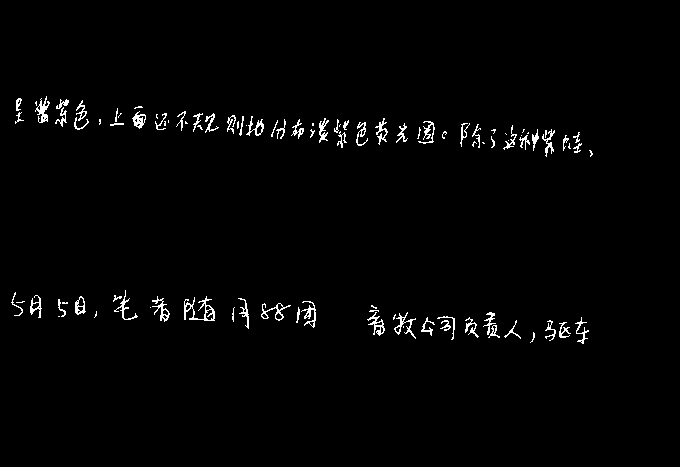 呈酱紫色，上面还不规则地分布淡紫色荧光圈。除了这种紫蛙，
5月5日，笔者随同88团 畜牧公司负责人，驱车